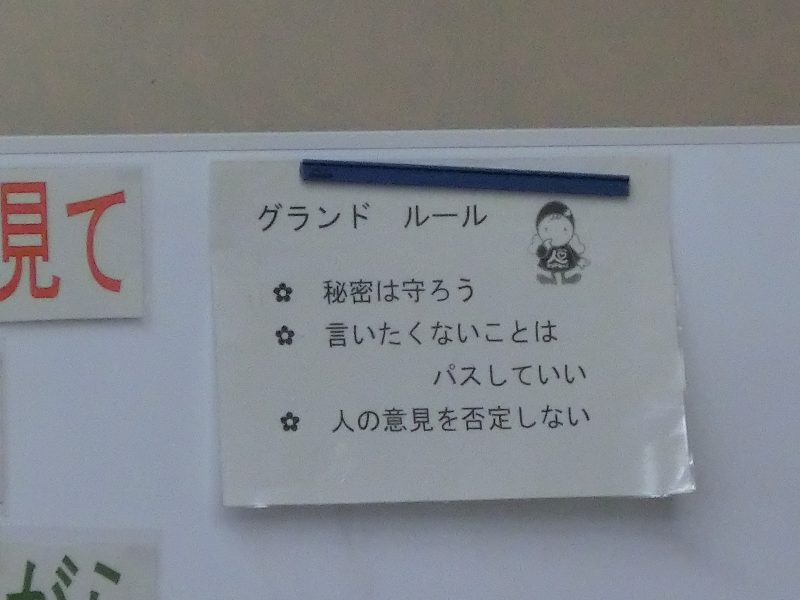 見て
グランド ルール
✿ 秘密は守ろう
✿ 言いたくないことは
パスしていい
✿ 人の意見を否定しない